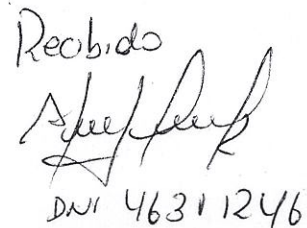 Recibido
DNI 46311246